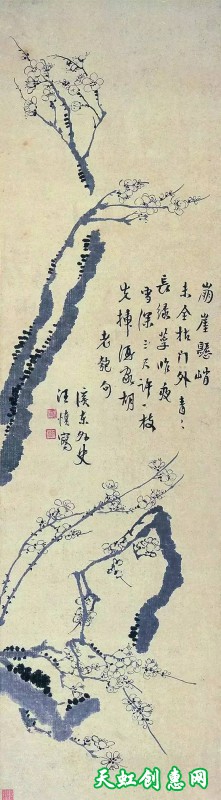 崩崖懸峭
未全枯门外青々
長緑草昨夜
雪深三尺許一枝
先掃酒家胡
老匏句
溪東外史
汪慎寫
天虹创惠网